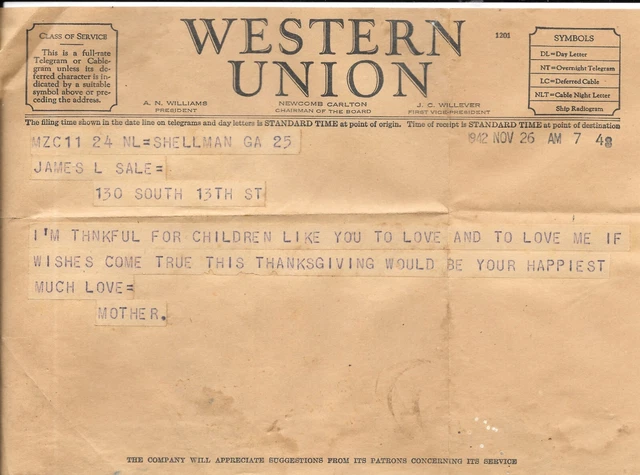 CLASS OF SERVICE
This is a full-rate
Telegram or Cable-
gram unless its de-
ferred character is in-
dicated by a suitable
symbol above or pre-
ceding the address.
WESTERN
UNION
1201
SYMBOLS
DL=Day Letter
NT=Overnight Telegram
LC=Deferred Cable
NLT=Cable Night Letter
Ship Radiogram
A. N. WILLIAMS
PRESIDENT
NEWCOMB CARLTON
CHAIRMAN OF THE BOARD
J. C. WILLEVER
FIRST VICE-PRESIDENT
The filing time shown in the date line on telegrams and day letters is STANDARD TIME at point of origin. Time of receipt is STANDARD TIME at point of destination
MZC11 24 NL=SHELLMAN GA 25
1942 NOV 26 AM 7 48
JAMES L SALE=
130 SOUTH 13TH ST
I'M THNKFUL FOR CHILDREN LIKE YOU TO LOVE AND TO LOVE ME IF
WISHES COME TRUE THIS THANKSGIVING WOULD BE YOUR HAPPIEST
MUCH LOVE=
MOTHER.
THE COMPANY WILL APPRECIATE SUGGESTIONS FROM ITS PATRONS CONCERNING ITS SERVICE